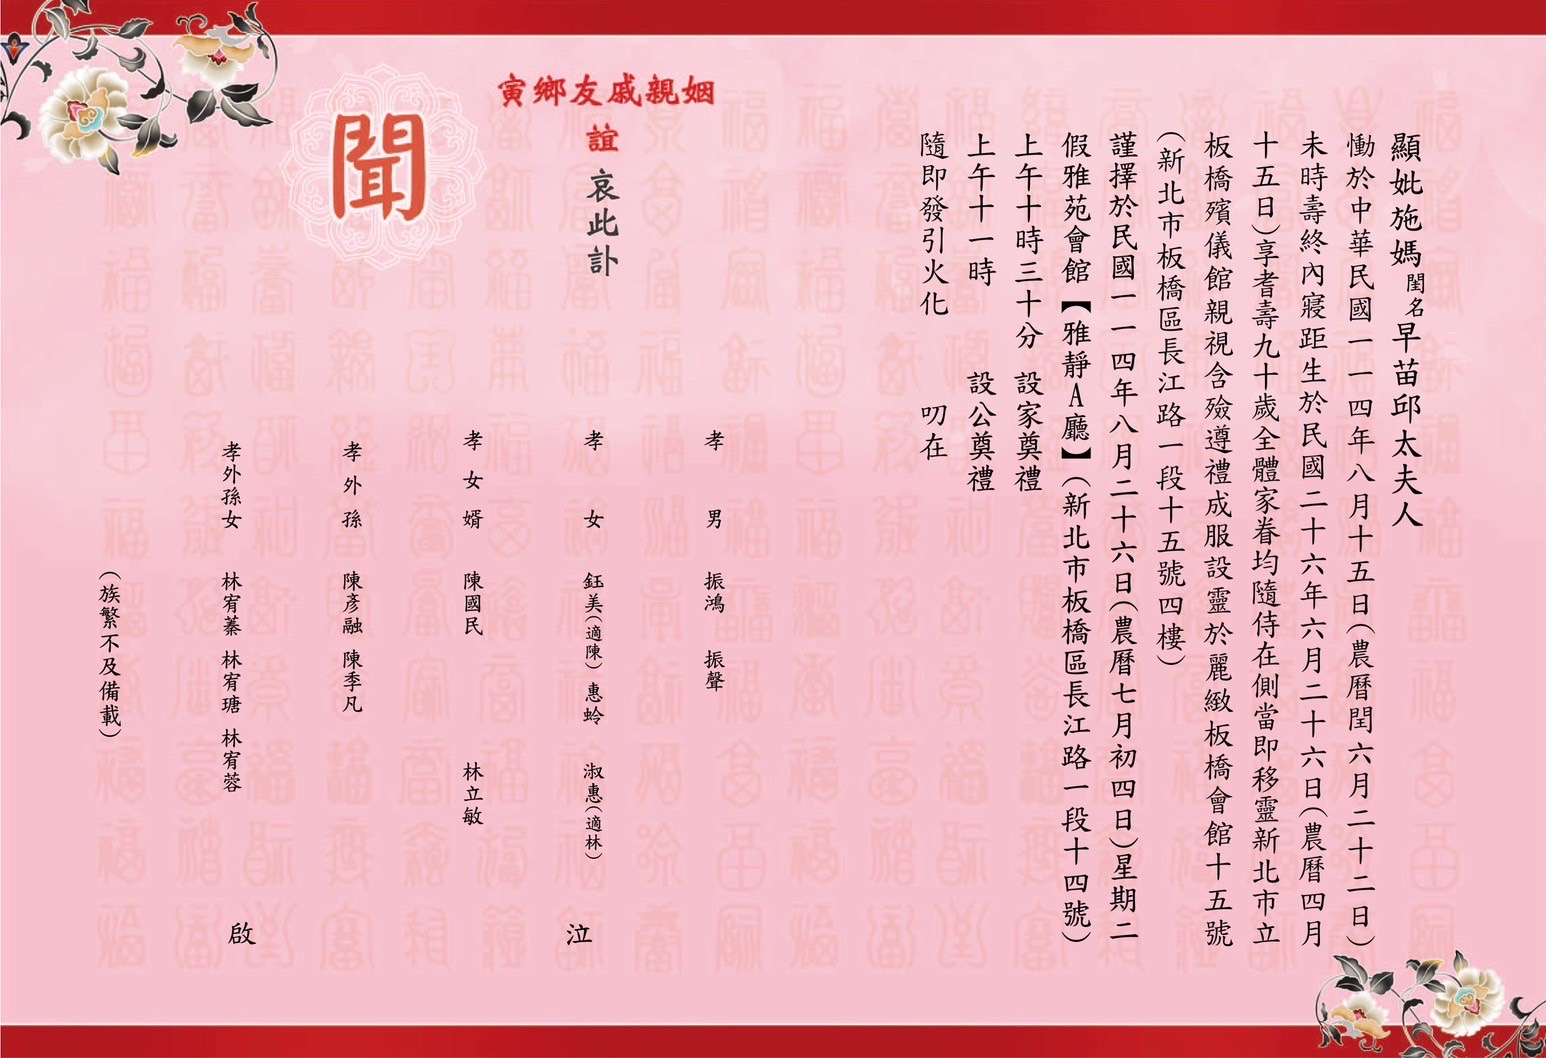 顯妣施媽閨名早苗邱太夫人
慟於中華民國一一四年八月十五日(農曆閏六月二十二日)
未時壽終內寢距生於民國二十六年六月二十六日(農曆四月
十五日)享耆壽九十歲全體家眷均隨侍在側當即移靈新北市立
板橋殯儀館親視含殮遵禮成服設靈於麗緻板橋會館十五號
(新北市板橋區長江路一段十五號四樓)
謹擇於民國一一四年八月二十六日(農曆七月初四日)星期二
假雅苑會館【雅靜A廳】(新北市板橋區長江路一段十四號)
上午十時三十分 設家奠禮
上午十一時 設公奠禮
隨即發引火化 叨在
寅鄉友戚親姻
誼 哀此訃
聞
孝男 振鴻 振聲
孝女 鈺美(適陳) 惠蛉 淑惠(適林)
孝女婿 陳國民 林立敏
孝外孫 陳彥融 陳季凡
孝外孫女 林宥蓁 林宥瑭 林宥蓉
泣
啟
(族繁不及備載)